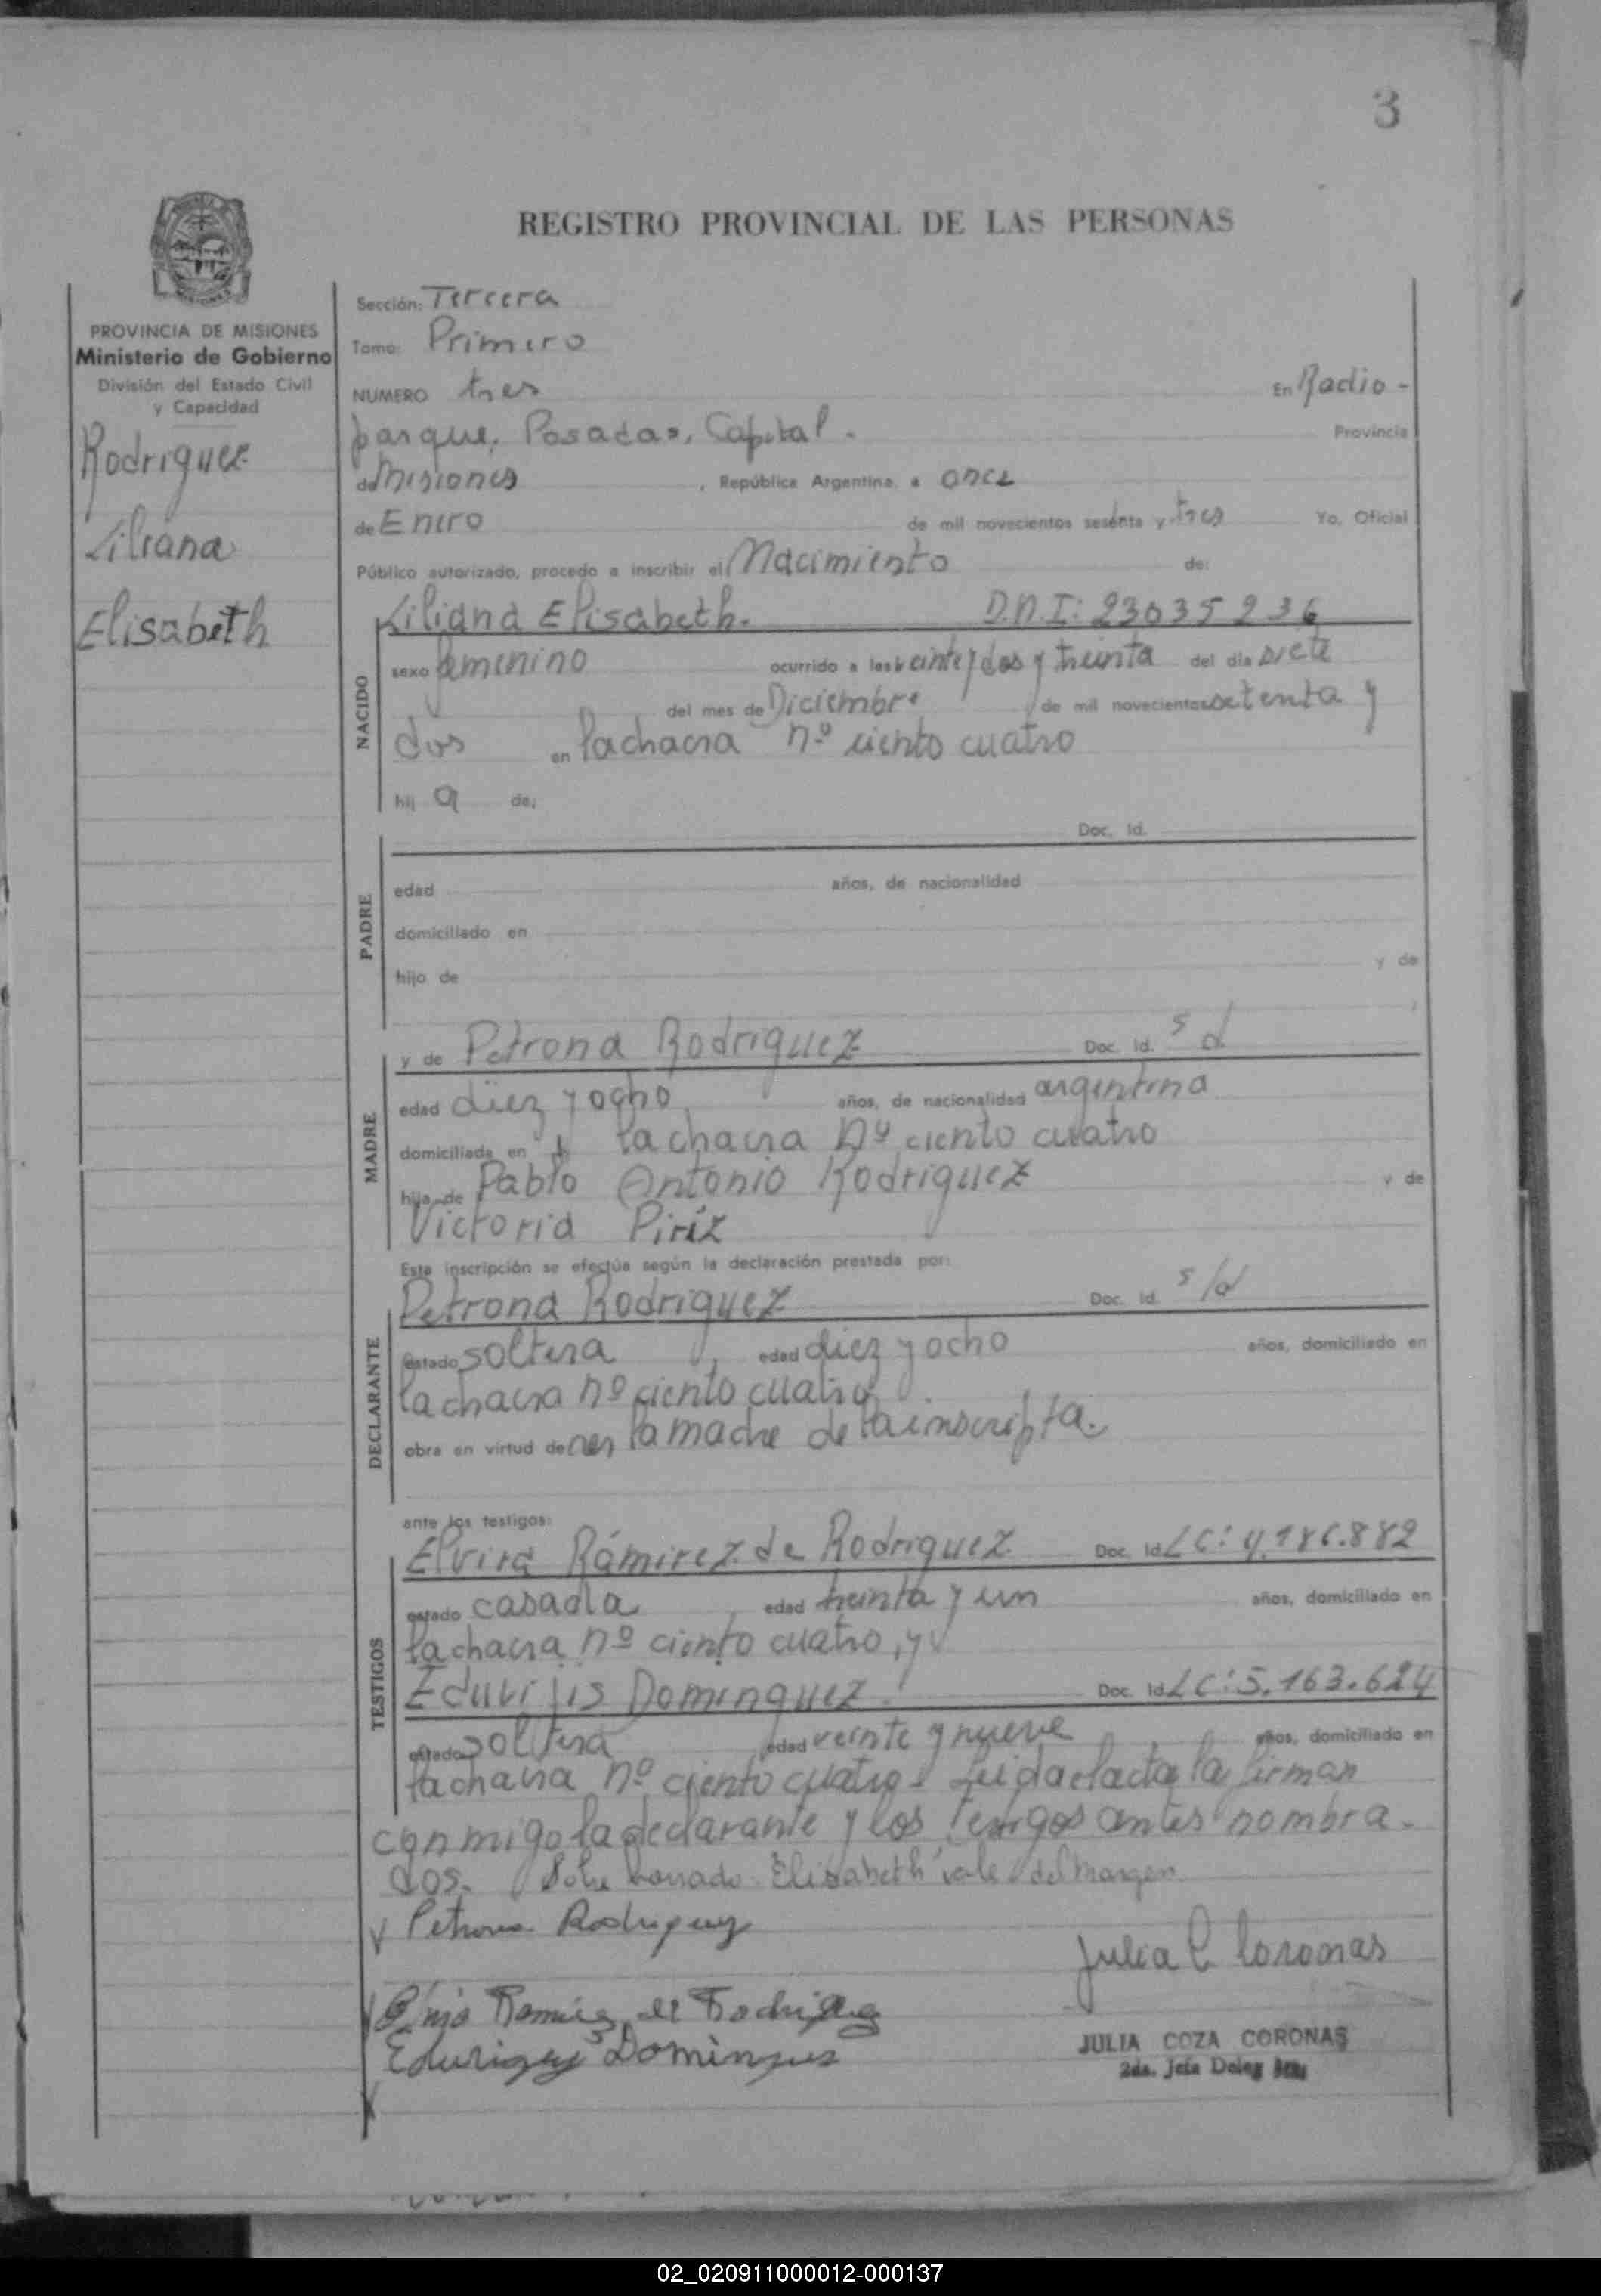 3
REGISTRO PROVINCIAL DE LAS PERSONAS
PROVINCIA DE MISIONES
Ministerio de Gobierno
División del Estado Civil
y Capacidad
Rodriguez
Liliana
Elisabeth
Sección: Tercera
Tomo: Primero
NUMERO tres En Radio -
parque, Posadas, Capital. Provincia
de Misiones, República Argentina, a once
de Enero de mil novecientos sesenta y tres Yo, Oficial
Público autorizado, procedo a inscribir el Nacimiento de:
Liliana Elisabeth. D.N.I: 23035236
NACIDO
sexo femenino ocurrido a las veinte y dos y treinta del día siete
del mes de Diciembre de mil novecientos setenta y
dos en la chacra nº ciento cuatro
hij a de:
Doc. Id.
PADRE
edad años, de nacionalidad
domiciliado en
hijo de y de
MADRE
y de Petrona Rodriguez Doc. Id. s d
edad diez y ocho años, de nacionalidad argentina
domiciliada en la chacra nº ciento cuatro
hija de Pablo Antonio Rodriguez y de
Victoria Piriz
Esta inscripción se efectúa según la declaración prestada por:
DECLARANTE
Petrona Rodriguez Doc. Id. s/d
estado soltera, edad diez y ocho años, domiciliado en
la chacra nº ciento cuatro
obra en virtud de ser la madre de la inscripta.
ante los testigos:
TESTIGOS
Elvira Rámirez de Rodriguez Doc. Id. LC: 4.186.882
estado casada edad treinta y un años, domiciliado en
la chacra nº ciento cuatro, y
Eduvijis Dominguez Doc. Id. LC: 5.163.624
estado soltera edad veinte y nueve años, domiciliado en
la chacra nº ciento cuatro - Leida el acta la firman
conmigo la declarante y los testigos antes nombra-
dos. Sobre borrado: Elisabeth vale del margen
Petrona Rodriguez
Julia C Coronas
Ramirez de Rodriguez
Eduvigys Domingues
JULIA COZA CORONAS
2da. Jefa Deleg
02_020911000012-000137